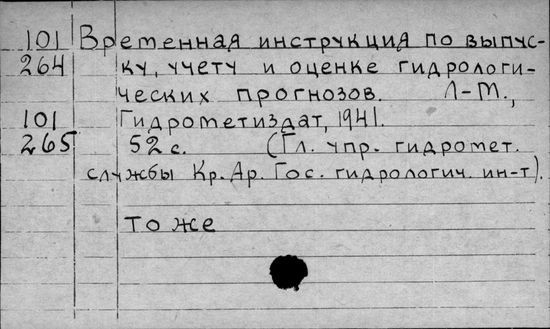 101 Временная инструкция по выпус-
264 ку, учету и оценке гидрологи-
ческих прогнозов. Л-М.,
101 Гидрометиздат, 1941.
265 52 с. (Гл. упр. гидромет.
службы Кр. Ар. Гос. гидрологич. ин-т).
То же